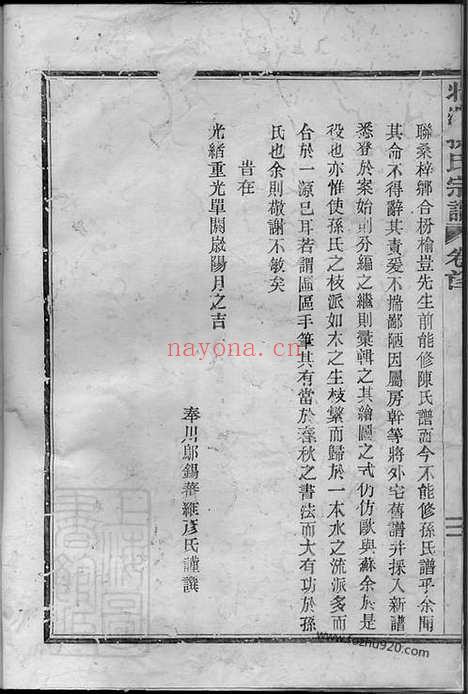 孫氏宗譜 卷首
聯桑梓鄉合枌榆豈先生前能修陳氏譜而今不能修孫氏譜乎余聞
其命不得辭其責爰不揣鄙陋因屬房幹等將外宅舊譜幷採入新譜
悉登於案始則分編之繼則彙輯之其繪圖之式仍仿歐與蘇余於是
役也亦惟使孫氏之枝派如木之生枝繁而歸於一本水之流派多而
合於一源已耳若謂區區手筆其有當於春秋之書法而大有功於孫
氏也余則敬謝不敏矣
昔在
光緒重光單閼歲陽月之吉
奉川鄔錫蕃維彥氏謹譔
nayona.cn
www.fozhu920.com